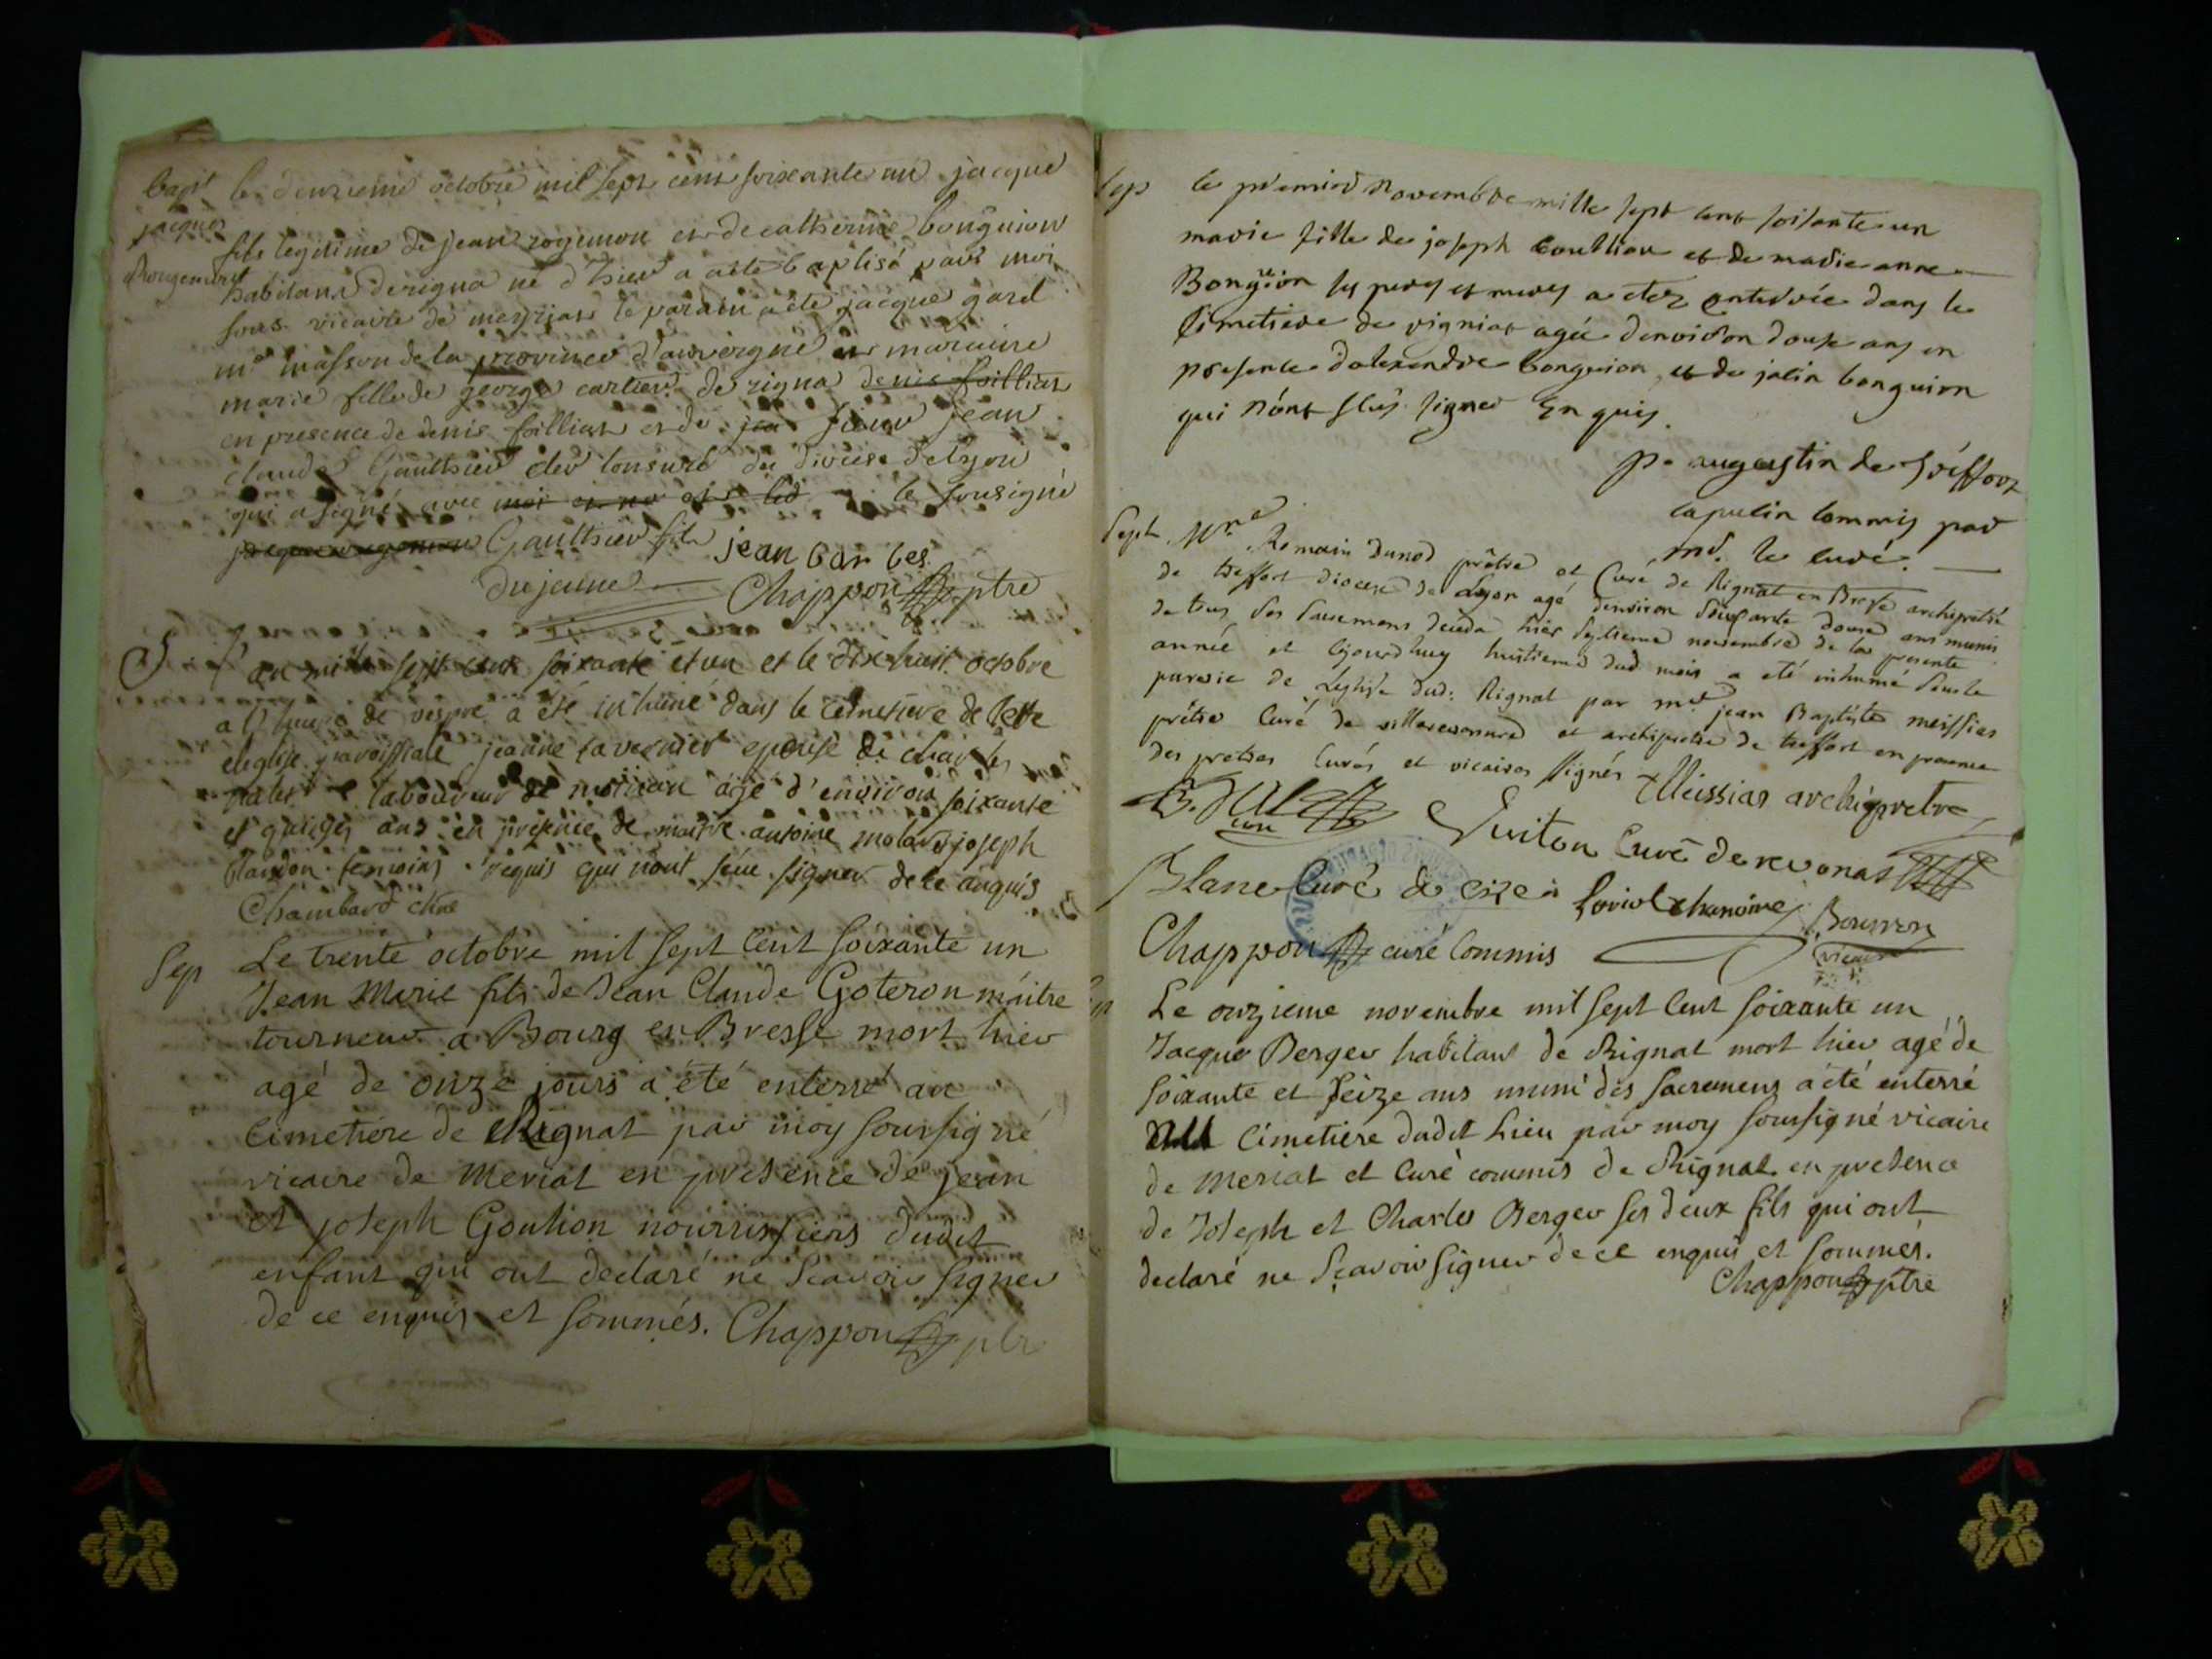 bapt le deuxieme octobre mil sept cent soixante un jacque
jacques
Rougemont
fils legitime de jean rogemon et de catherine bonguion
habitans de rigna né d'hier a aété baptisé pard moi
sous vicaire de meyrias le parain a été jacque gard
me masson de la province d'auvergne et maraine
marie fille de george carlier de rigna denis foillias
en presence de denis foillias et de jea sieur jean
claude Gaulthier cler tonsuré du diocese de lyon
qui a signé avec moi le sousigné
jacque rogemon Gaulthier fils jean barbes
du jeune Chappon ptre
S L'an mille sept cent soixante et un et le dix huit octobre
a l'heure de vespre a été inhumé dans le cimetiere de cette
eleglise paroissiale jeanne tavernier epouse de charles
laboureur de agé d'environ soixante
et quinzes ans en presence de maitre antoine molard joseph
blandon temoins requis qui nont sceu signer de ce anquis
Chambard
Sep Le trente octobre mil sept cent soixante un
Jean Marie fils de Jean Claude Goteron maitre
tourneur a Bourg en Bresse mort hier
agé de onze jours a été enterré au
Cimetiere de Rignat par moy soussigné
vicaire de meriat en presence de jean
et joseph Goulion nourrissiers dudit
enfant qui ont declaré ne scavoir signer
de ce enquis et sommés. Chappon ptr
Sep le premier novembre mille sept cent soisante un
marie fille de joseph Coulliou et de marie anne
Bonguion ses peres et meres a etez enterrée dans le
simetiere de rigniat agée denviron douse ans en
presente dalexendre bonguion et de jolin bonguion
qui n'ont sceu signer Enquis.
p. augustin de tréffort
capulin commis par
mr. le curé.
Sept Mre Romain Dunod prêtre et Curé de Rignat en Bresse archipretré
de treffort diocese de Lyon agé denviron soixante douse ans munis
de tous ses sacremens deceda hier septieme novembre de la presente
année et cejourdhuy huitieme dud mois a eté inhumé sous le
parvis de Leglise dud: Rignat par mre jean Baptiste meissias
prêtre Curé de villereversure et archiprêtre de treffort en presence
des pretres Curés et vicaires signés Meissias archiprêtre
curé Guiton Curé de revonas
Blanc Curé de Cize Loriol chanoine Bourron
Chappon curé Commis vicaire
Sep Le onzieme novembre mil sept cent soixante un
Jacque Berger habitant de Rignat mort hier agé de
soixante et seize ans muni des sacremens a été enterré
au Cimetiere dudit lieu par moy soussigné vicaire
de meriat et Curé commis de Rignat en presence
de Joseph et Charles Berger ses deux fils qui ont
declaré ne sçavoir signer de ce enquis et sommés.
Chappon ptre